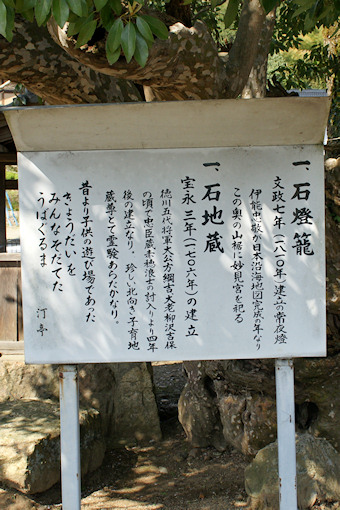 一、石燈籠
文政七年(一八一〇年)建立の常夜燈
伊能忠敬が日本沿海地図完成年なり
この奥の山裾に妙見宮を祀る
一、石地蔵
宝永三年(一七〇六年)の建立
徳川五代将軍犬公方綱吉大老柳沢吉保
の頃で忠臣蔵赤穂浪士の討入りより四年
後の建立なり、珍しい北向き子育地
蔵尊として霊験あらたかなり。
昔より子供の遊び場であった
きょうだいを
みんなそだてた
うばぐるま
汀亭